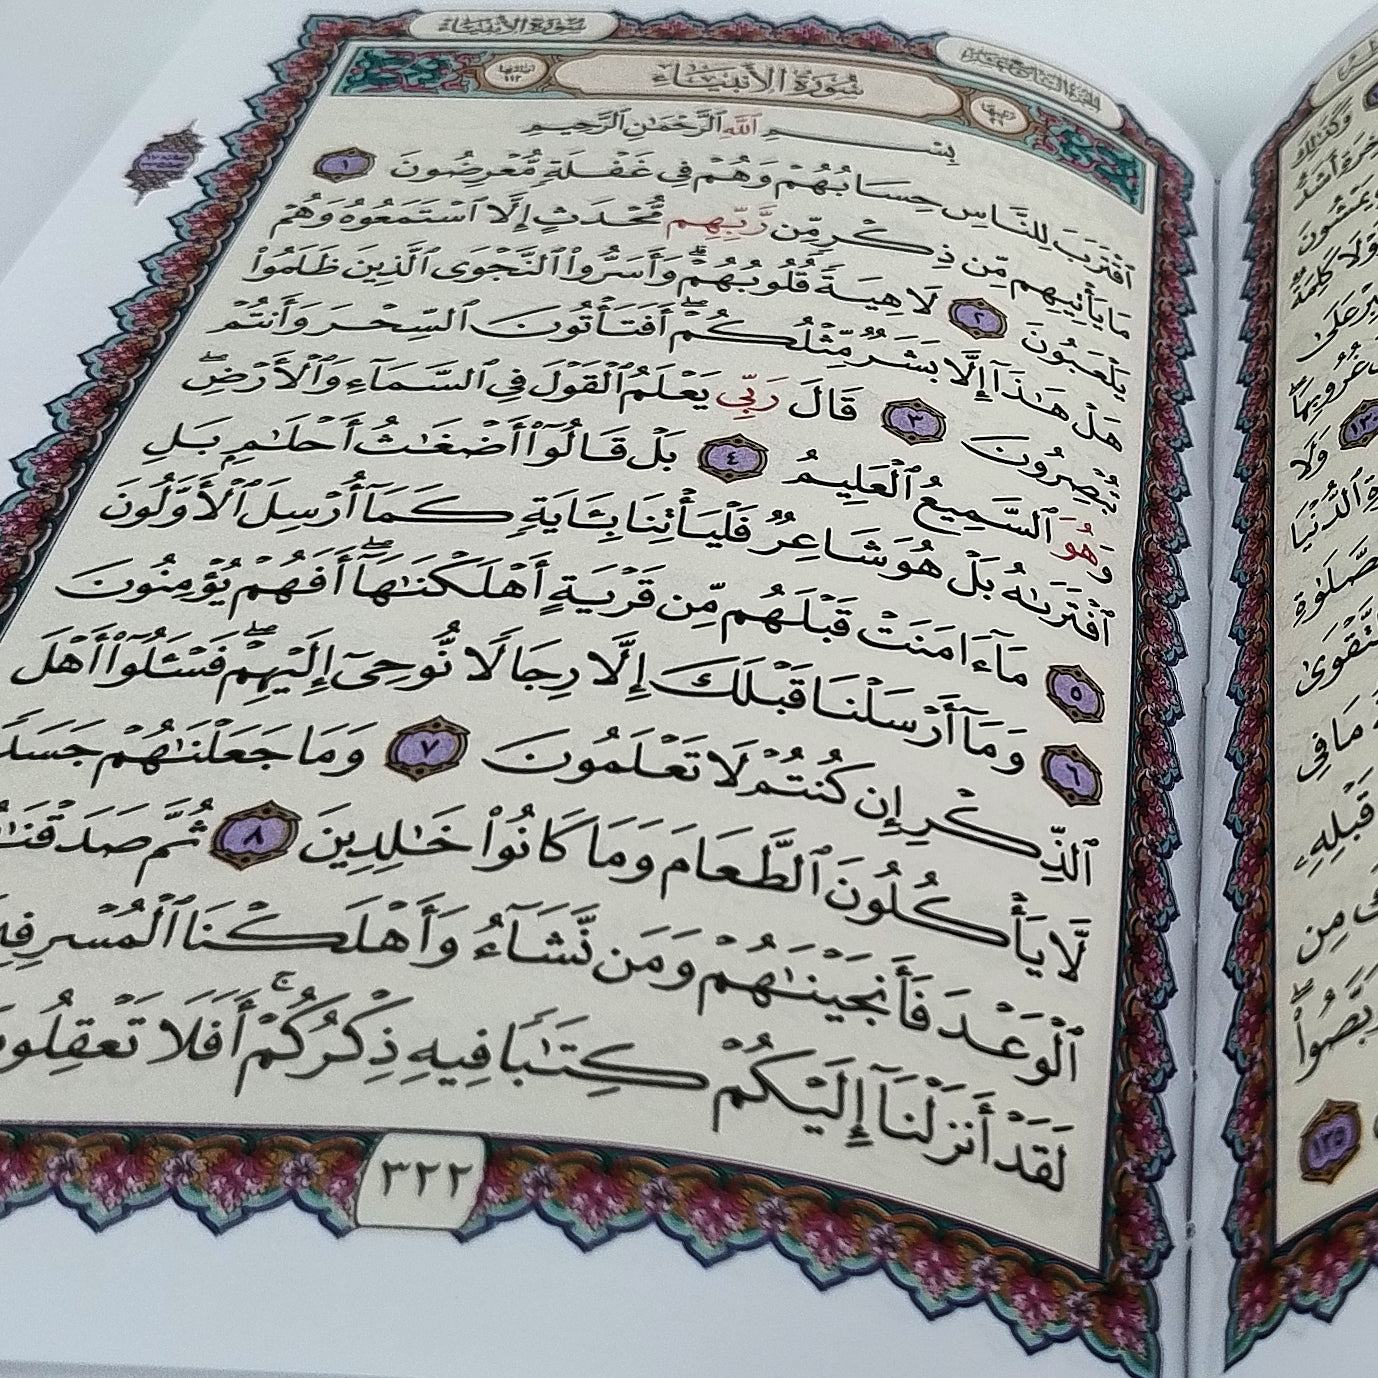 سُورَةُ الأَنبِيَاءِ
سُورَةُ الأَنبِيَاءِ
بِسْمِ ٱللَّهِ ٱلرَّحْمَٰنِ ٱلرَّحِيمِ
ٱقْتَرَبَ لِلنَّاسِ حِسَابُهُمْ وَهُمْ فِي غَفْلَةٍ مُّعْرِضُونَ ١
مَا يَأْتِيهِم مِّن ذِكْرٍ مِّن رَّبِّهِم مُّحْدَثٍ إِلَّا ٱسْتَمَعُوهُ وَهُمْ
يَلْعَبُونَ ٢ لَاهِيَةً قُلُوبُهُمْ ۗ وَأَسَرُّوا۟ ٱلنَّجْوَى ٱلَّذِينَ ظَلَمُوا۟
هَلْ هَٰذَآ إِلَّا بَشَرٌ مِّثْلُكُمْ ۖ أَفَتَأْتُونَ ٱلسِّحْرَ وَأَنتُمْ
تُبْصِرُونَ ٣ قَالَ رَبِّي يَعْلَمُ ٱلْقَوْلَ فِي ٱلسَّمَآءِ وَٱلْأَرْضِ ۖ
وَهُوَ ٱلسَّمِيعُ ٱلْعَلِيمُ ٤ بَلْ قَالُوٓا۟ أَضْغَٰثُ أَحْلَٰمٍۭ بَلِ
ٱفْتَرَىٰهُ بَلْ هُوَ شَاعِرٌ فَلْيَأْتِنَا بِـَٔايَةٍ كَمَآ أُرْسِلَ ٱلْأَوَّلُونَ
٥ مَآ ءَامَنَتْ قَبْلَهُم مِّن قَرْيَةٍ أَهْلَكْنَٰهَآ ۖ أَفَهُمْ يُؤْمِنُونَ
٦ وَمَآ أَرْسَلْنَا قَبْلَكَ إِلَّا رِجَالًا نُّوحِيٓ إِلَيْهِمْ ۖ فَسْـَٔلُوٓا۟ أَهْلَ
ٱلذِّكْرِ إِن كُنتُمْ لَا تَعْلَمُونَ ٧ وَمَا جَعَلْنَٰهُمْ جَسَدًا
لَّا يَأْكُلُونَ ٱلطَّعَامَ وَمَا كَانُوا۟ خَٰلِدِينَ ٨ ثُمَّ صَدَقْنَٰ
ٱلْوَعْدَ فَأَنجَيْنَٰهُمْ وَمَن نَّشَآءُ وَأَهْلَكْنَا ٱلْمُسْرِفِي
لَقَدْ أَنزَلْنَآ إِلَيْكُمْ كِتَٰبًا فِيهِ ذِكْرُكُمْ ۚ أَفَلَا تَعْقِلُو
٣٢٢
وَلَا
مَا فِي
قَبْلِهِۦ
مِن
١٣٥